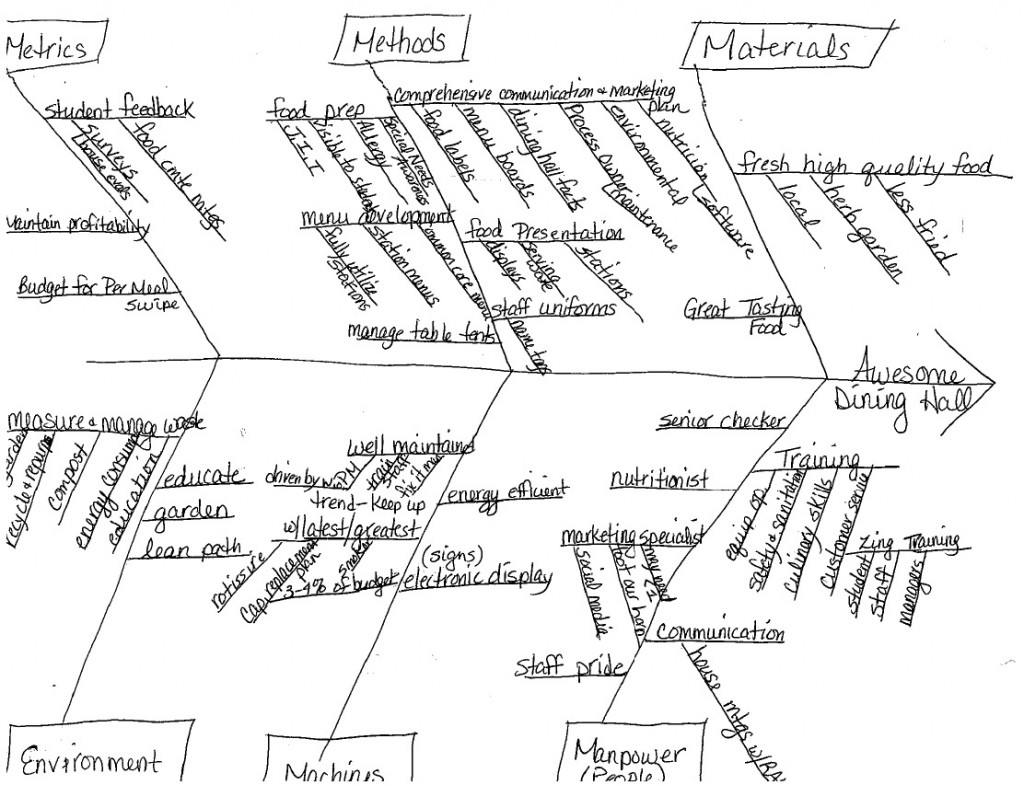 Metrics
student feedback
surveys
house evals
food cmte mtgs
Maintain profitability
Budget for Per Meal
swipe
Methods
food prep
J.I.T
Visible to students
Allergy
Special Needs
Awareness
menu development
fully utilize
stations
station menus
common core menu
manage table tents
comprehensive communication & marketing
plan
food labels
menu boards
dining hall facts
Process owner
maintenance
environmental
nutrition
software
food Presentation
displays
serving
ware
stations
staff uniforms
name tags
Materials
fresh high quality food
local
herb garden
less fried
Great Tasting
Food
Awesome
Dining Hall
measure & manage waste
garden
recycle & repurpose
compost
energy consump
education
educate
garden
lean path
Environment
well maintained
driven by
train
staff
fix it
trend-keep up
w/latest/greatest
rotissire
cap replacement
plan
smoker
3-4% of budget
energy efficient
(signs)
electronic display
Machines
senior checker
nutritionist
marketing specialist
social media
toot our horn
may need
communication
house mtgs w/RA
staff pride
Training
equip op
safety & sanitation
culinary skills
customer service
Zing Training
student
staff &
managers
Manpower
(People)